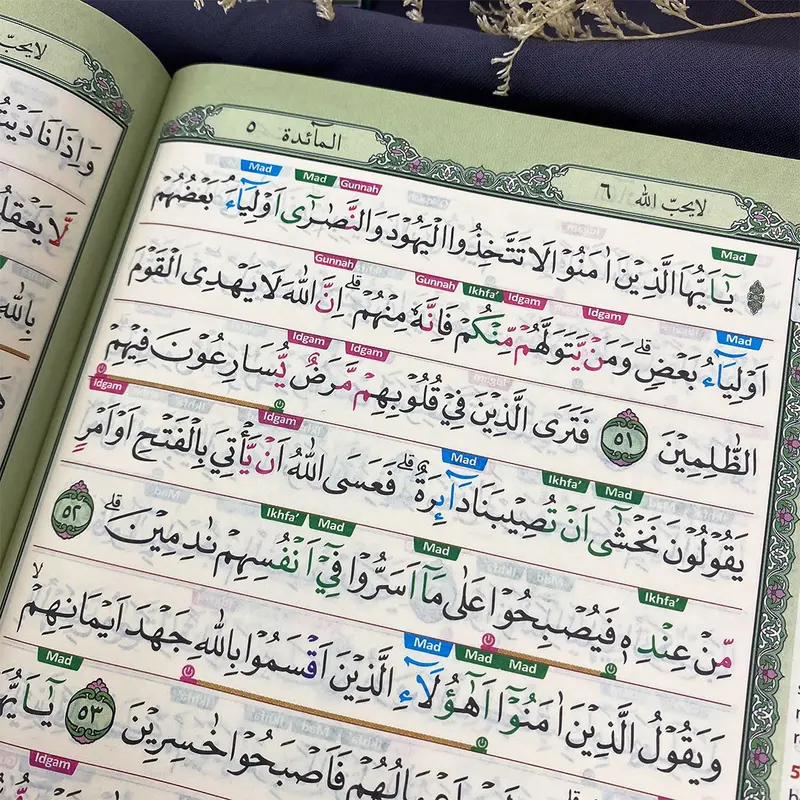 المآئدة ٥
لايحبّ الله ٦
Mad Mad Gunnah Mad
يٰٓاَيُّهَا الَّذِيْنَ اٰمَنُوْا لَا تَتَّخِذُوا الْيَهُوْدَ وَالنَّصٰرٰٓى اَوْلِيَاۤءَ ۘ بَعْضُهُمْ
Gunnah Gunnah Ikhfa' Idgam Idgam Mad
اَوْلِيَاۤءُ بَعْضٍۗ وَمَنْ يَّتَوَلَّهُمْ مِّنْكُمْ فَاِنَّهٗ مِنْهُمْ ۗ اِنَّ اللّٰهَ لَا يَهْدِى الْقَوْمَ
Idgam Idgam
الظّٰلِمِيْنَ ٥١ فَتَرَى الَّذِيْنَ فِيْ قُلُوْبِهِمْ مَّرَضٌ يُّسَارِعُوْنَ فِيْهِمْ
Idgam Idgam Mad Ikhfa' Mad
يَقُوْلُوْنَ نَخْشٰٓى اَنْ تُصِيْبَنَا دَاۤىِٕرَةٌ ۗ فَعَسَى اللّٰهُ اَنْ يَّأْتِيَ بِالْفَتْحِ اَوْ اَمْرٍ
Ikhfa' Mad Mad Ikhfa'
مِّنْ عِنْدِهٖ فَيُصْبِحُوْا عَلٰى مَآ اَسَرُّوْا فِيْٓ اَنْفُسِهِمْ نٰدِمِيْنَۗ ٥٢
Mad Mad Mad
وَيَقُوْلُ الَّذِيْنَ اٰمَنُوْٓا اَهٰٓؤُلَاۤءِ الَّذِيْنَ اَقْسَمُوْا بِاللّٰهِ جَهْدَ اَيْمَانِهِمْۙ
Mad
اَعْمَالُهُمْ فَاَصْبَحُوْا خٰسِرِيْنَ ٥٣ يٰٓاَيُّهَا
Idgam